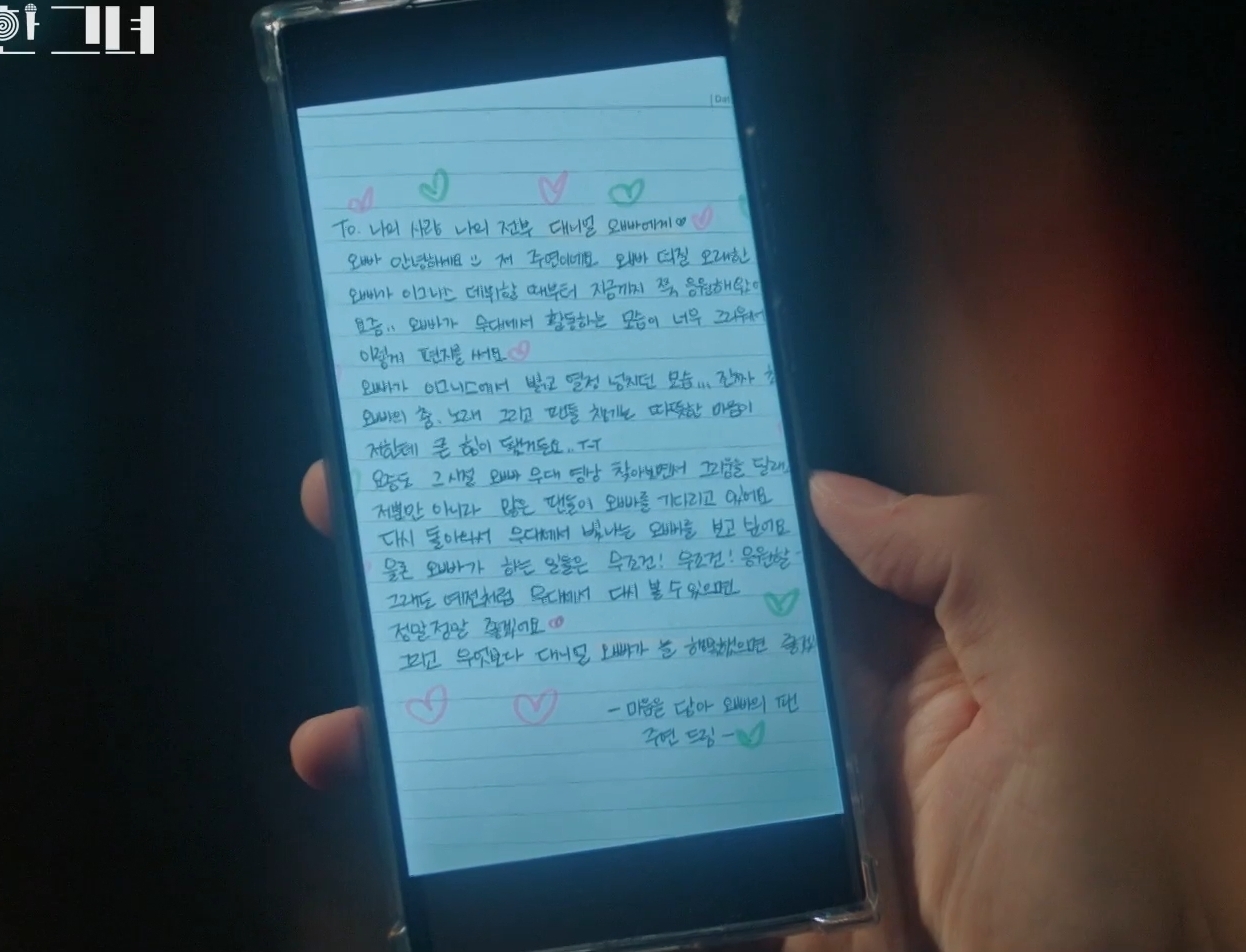 한 그녀
Dat
To. 나의 사랑 나의 전부 대니얼 오빠에게
오빠 안녕하세요 저 주연이에요 오빠 데뷔 오래한
오빠가 이그니스 데뷔할 때부터 지금까지 쭉 응원해왔어
요즘.. 오빠가 무대에서 활동하는 모습이 너무 그리워서
이렇게 편지를 써요
오빠가 이그니스에서 밝고 열정 넘치던 모습... 진짜
오빠의 춤, 노래 그리고 팬들 챙기는 따뜻한 마음이
저한테 큰 힘이 됐거든요.. T-T
요즘도 그 시절 오빠 무대 영상 찾아보면서 그리움을 달래
저뿐만 아니라 많은 팬들이 오빠를 기다리고 있어요
다시 돌아와서 무대에서 빛나는 오빠를 보고 싶어요
물론 오빠가 하는 일들은 무조건! 무조건! 응원할
그래도 예전처럼 무대에서 다시 볼 수 있으면
정말정말 좋겠어요
그리고 무엇보다 대니얼 오빠가 늘 행복했으면 좋겠
- 마음을 담아 오빠의 팬
주연 드림 -